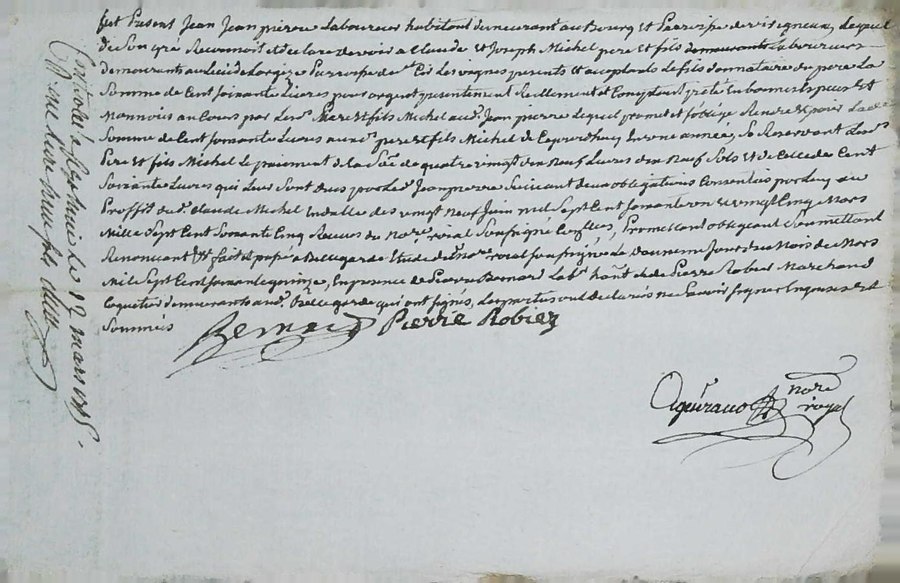 fut Present Jean Jeanpierre Laboureur habitant demeurant au bourg et Parroisse de Lequel
de Son gré Reconnoit et declare devoir a Claude et Joseph Michel pere et fils demeurants laboureurs
demeurants au lieu de Parroisse de Les vignes presents et acceptants Le fils donnataire du pere La
Somme de Cent soixante Livres pour argent presentement Reellement et Comptant preté En bonnes Especes et
Monnoies au Cours par Les Pere et fils Michel aud. Jeanpierre Lequel promet et s'oblige Rendre et paier Lad.
Somme de Cent soixante Livres auxd. pere et fils Michel de en une année, Se Reservant Lesd.
Pere et fils Michel Le paiement de La de quatre vingt dix Neuf Livres dix Neuf Sols et de Celle de Cent
Soixante Livres qui Leur Sont dues par Led. Jeanpierre Suivant deux obligations Consenties par Luy au
Proffit dud. Claude Michel En datte des vingt Neuf Juin mil Sept Cent soixante et vingt Cinq Mars
Mille Sept Cent Soixante Cinq Recues du Nore. roial Soussigné Promettant obligeant Soumettant
Renoncant fait et passé a Bellegarde Etude du nore. roial soussigné Le Douzieme Jour du Mois de Mars
Mil Sept Cent soixante quinze, En presence de Pierre Bernard et de Pierre Robier Marchand
Coquetier demeurants aud. Bellegarde qui ont signés, Les parties ont declarés ne Savoir signer Enquises et
Sommées
Bernard Pierre Robier
nore
royal
Contrôlé à Le 12 mars 1775.
Reçu une livre neuf sols